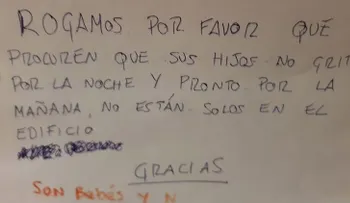 ROGAMOS POR FAVOR QUE
PROCUREN QUE SUS HIJOS NO GRIT
POR LA NOCHE Y PRONTO POR LA
MAÑANA, NO ESTÁN SOLOS EN EL
EDIFICIO
GRACIAS
SON BEBÉS Y N